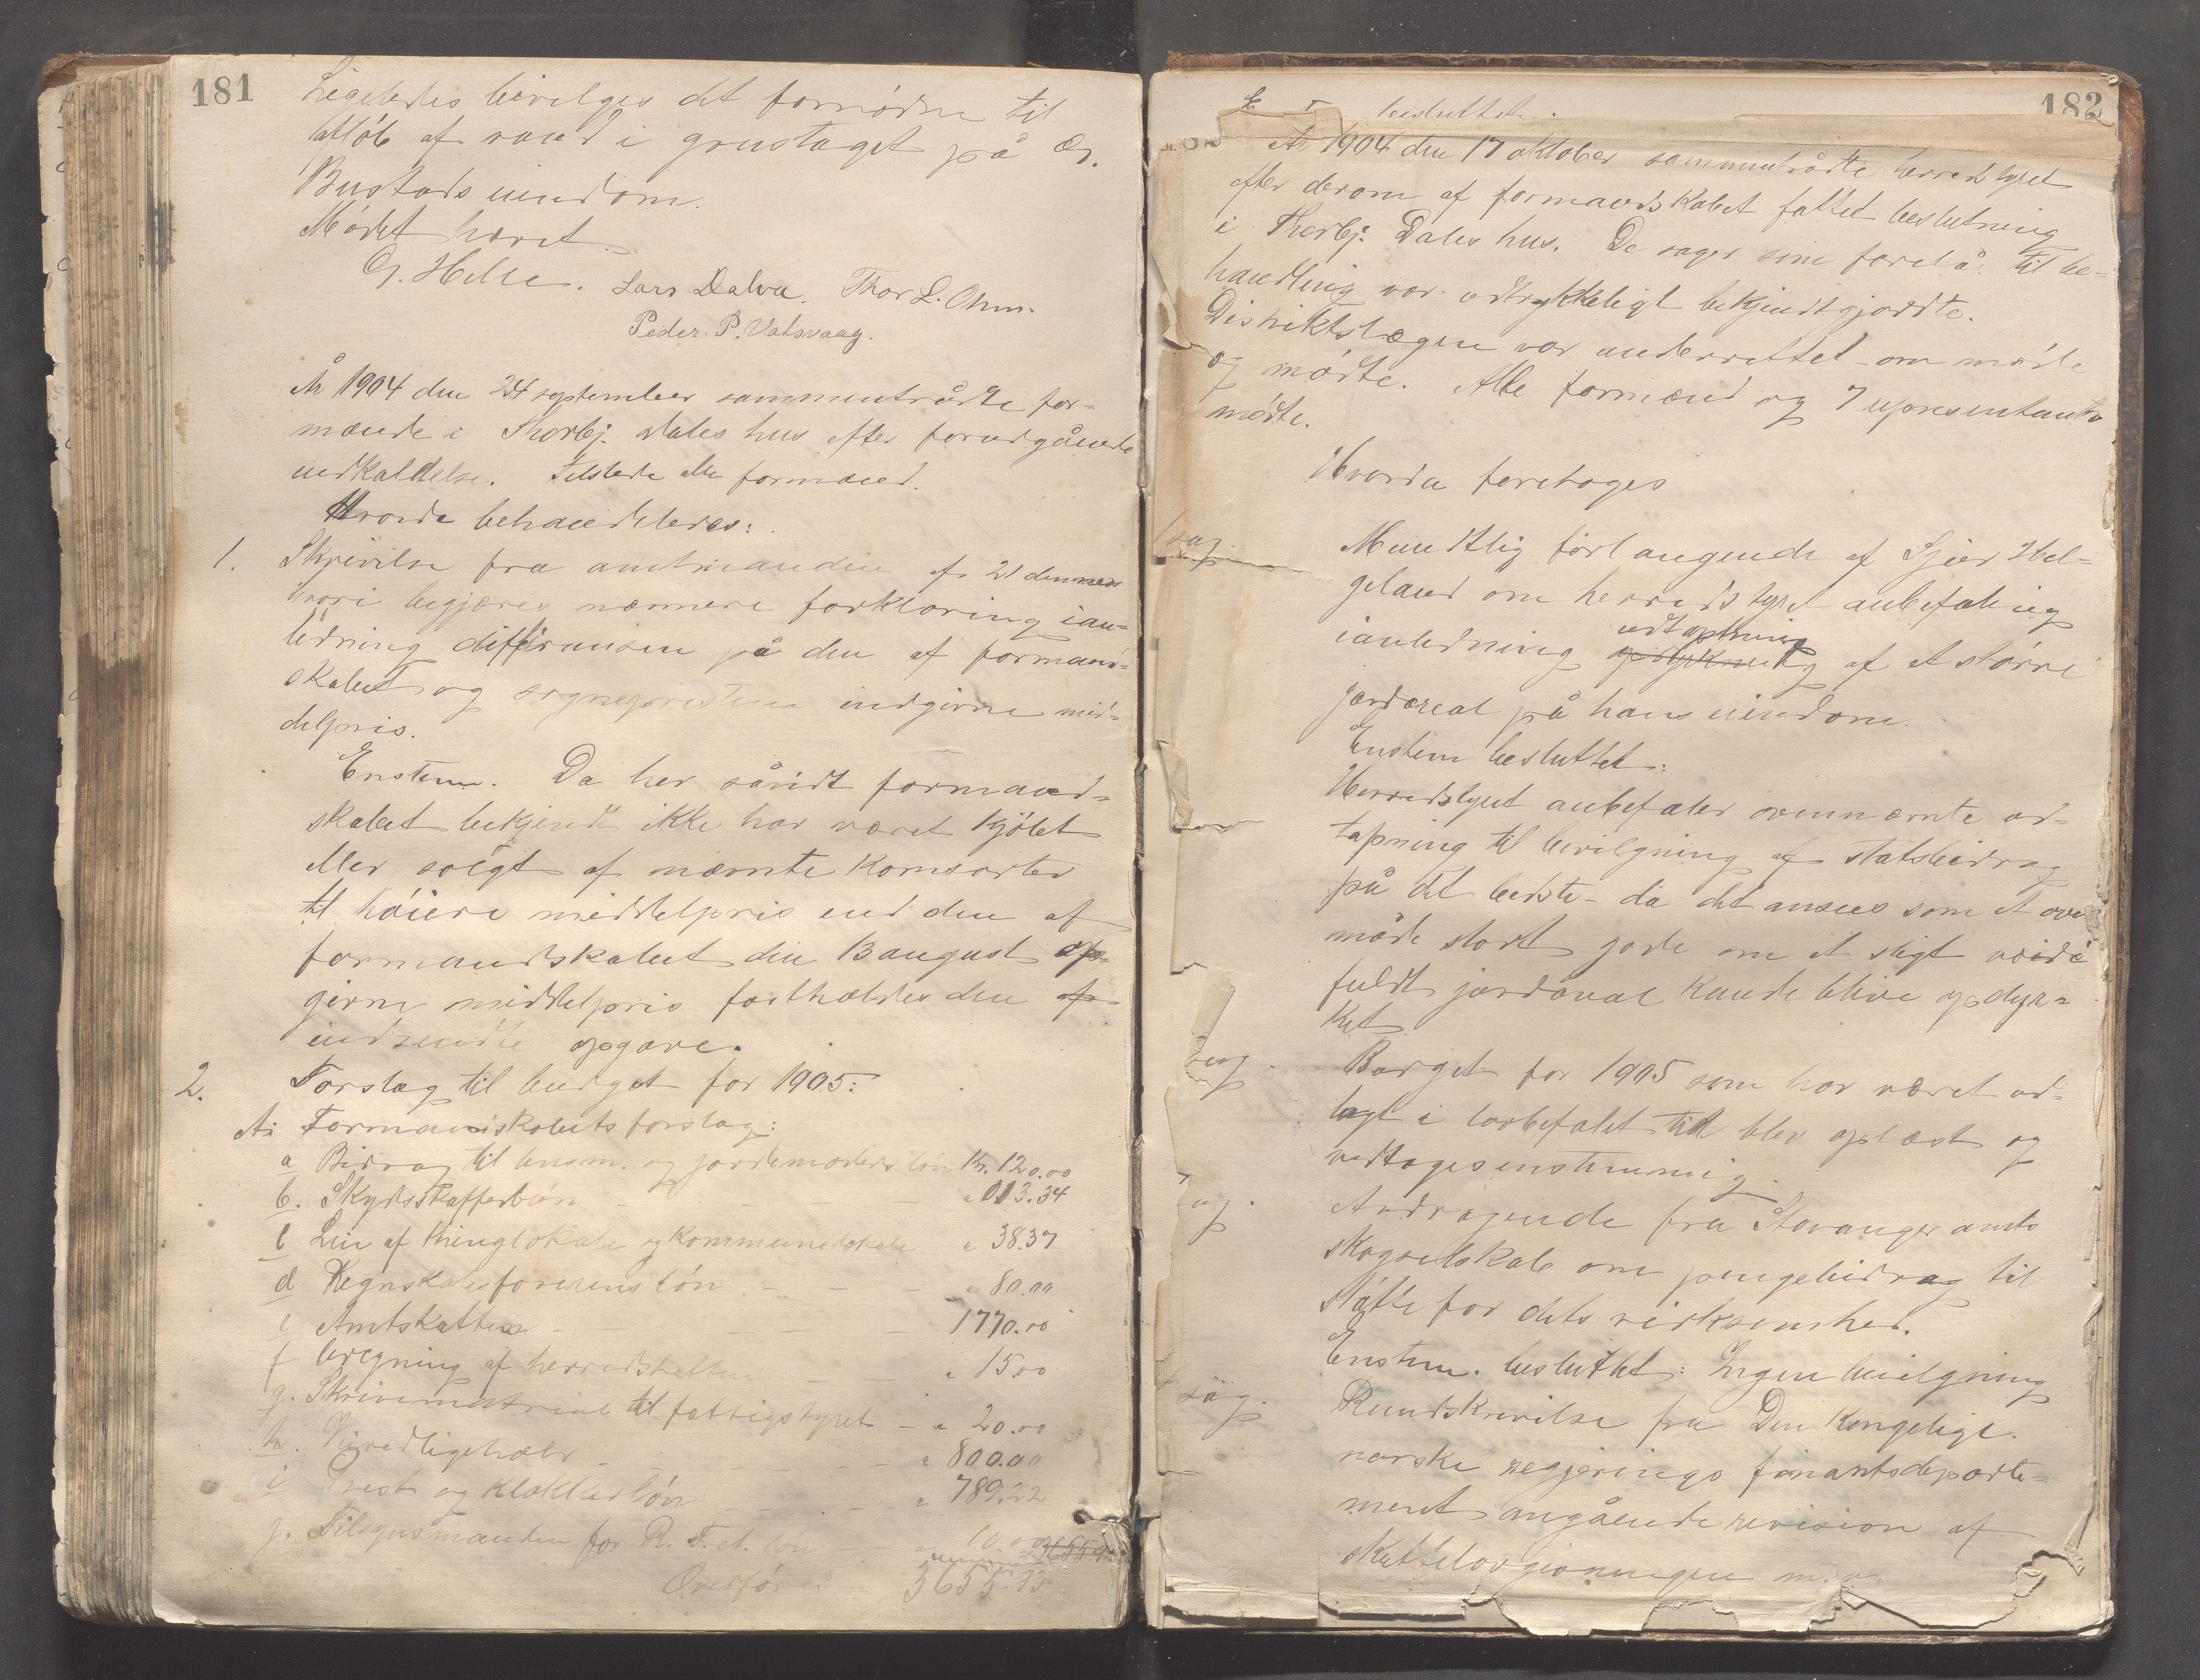 181
Ligeledes bevilges det fornødne til
afløb af vand i grustaget på Ør.
Bustads eiendom.
Mødet hævet.
G. Helle. Lars Dalva. Thor L. Ohm.
Peder. P. Vatsvaag.
År 1904 den 24 september sammentrådte for-
mænde i Thorbj. Dales hus efter forudgående
indkaldelse. Tilstede alle formænd.
Hvorda behandledes:
1. Skrivelse fra amtmanden af 21 dennes
hvori begjæres nærmere forklaring ian-
ledning differansen på den af formand-
skabet og sognepresten indgivne mid-
delpris.
Enstem. Da her såvidt formand-
skabet bekjendt ikke har været kjøbt
eller solgt af nævnte kornsorter
til høiere middelpris end den af
formandskabet den 13 august op-
givne middelpris fastholdes den af
indsendte opgave.
2. Forslag til budget for 1905:
A: Formandskabets forslag:
a Bidrag til lensm. og jordemoders løn Kr. 120.00
b. Skydsskafferløn - - " 013.34
c Leie af thinglokale og kommunelokale " 38.37
d Regnskabsførerens løn - - - " 80.00
e Amtskatten - - - - 1770.00
f beregning af herredskatten - - " 15.00
g. Skrivematrial til fattigstyret - " 20.00
h. Veivedligehold - - - " 800.00
i Prest og klokkerløn - - - " 789.22
j. Tilsynsmanden for R. F. A. løn - - " 10.00
Overført 3655.93
182
besluttet.
År 1904 den 17 oktober sammentrådte herredstyret
efter derom af formandskabet fattet beslutning
i Thorbj. Dales hus. De sager som forelå til be-
handling var udtrykkeligt bekjendtgjordte.
Distriktslægen var underrettet om møde
og mødte. Alle formænd og 7 representanter
mødte.
Hvorda foretoges
sag. Mundtlig forlangende af Sjur Hel-
geland om herredstyret anbefaling
udtapning
ianledning opdyrkning af et større
jordareal på hans eiendom.
Enstem besluttet:
Herredstyret anbefaler ovennævnte ud-
tapning til bevilgning af statsbidrag
på det bedste - da det ansees som et over
måde stort gode om et sligt værdi
fuldt jordareal kunde blive opdyr-
ket
sag. Budget for 1905 som har været ud-
lagt i lovbefalet tid blev oplæst og
vedtoges enstemmig.
sag. Andragende fra Stavanger amts
skogselskab om pengebidrag til
støtte for dets virksomhed.
Enstem. besluttet: Ingen bevilgning
sag. Rundskrivelse fra Den Kongelige.
norske regjerings finantsdeparte-
ment angående revision af
skattelovgivningen m. v.